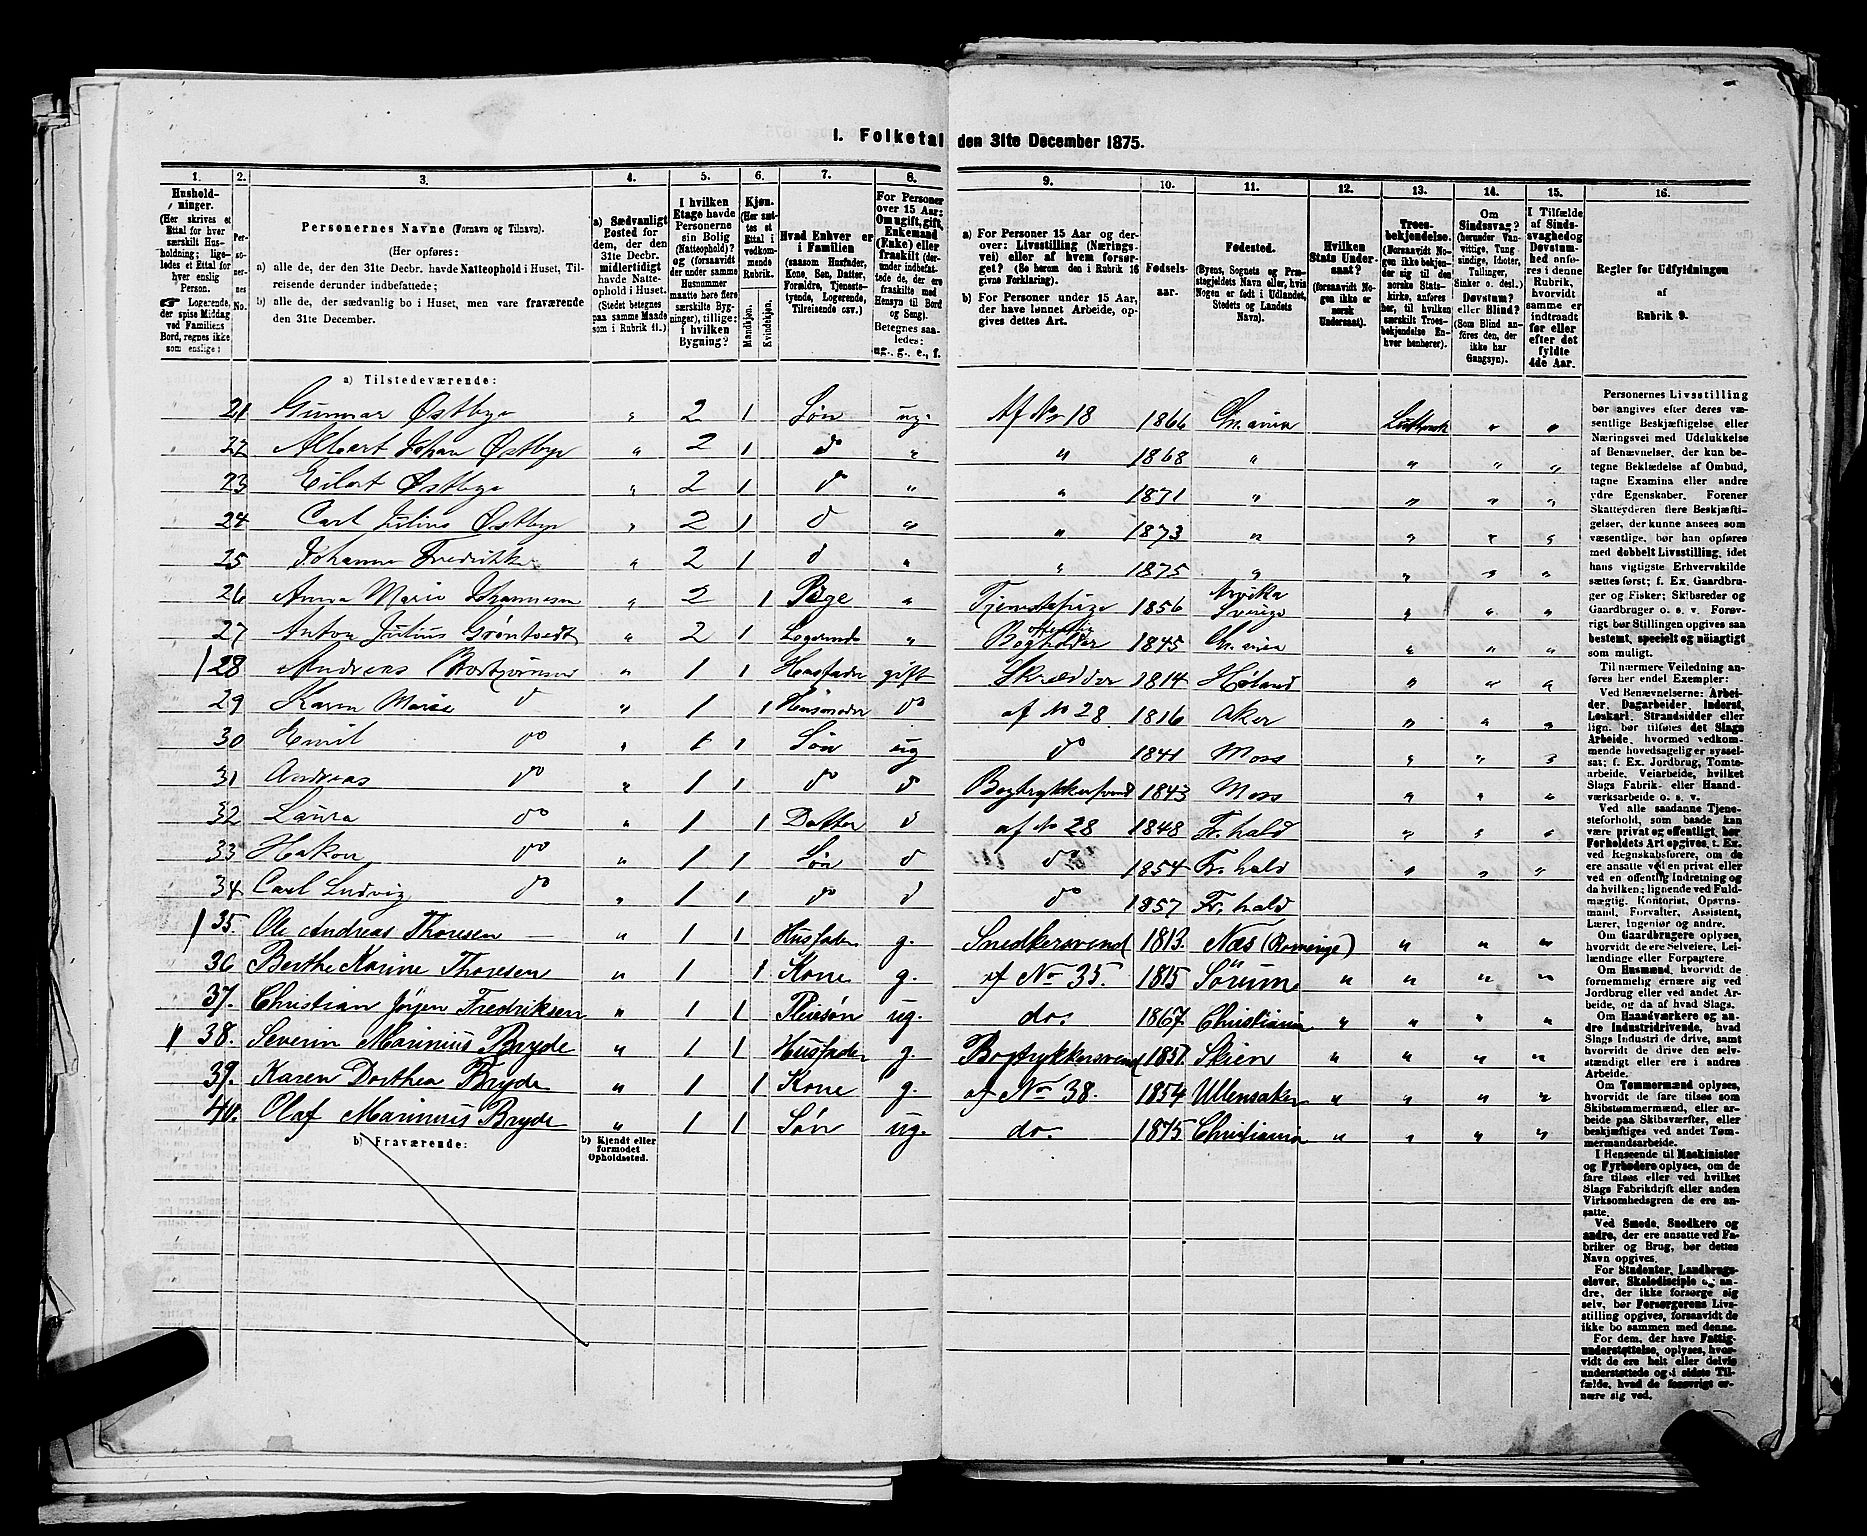 I. Folketal den 31te December 1875.
1. 2. 3. 4. 5. 6. 7. 8. 9. 10. 11. 12. 13. 14. 15. 16.
Husholdninger.
(Her skrives et Ettal for hver særskilt Husholdning; ligeledes et Ettal for hver enslig Person.
Logerende, der spise Middag ved Familiens Bord, regnes ikke som enslige:
Personernes No.
Personernes Navne (Fornavn og Tilnavn).
(Her opføres:
a) alle de, der den 31te Decbr. havde Natteophold i Huset, Tilreisende derunder indbefattede;
b) alle de, der sædvanlig bo i Huset, men vare fraværende den 31te December.
a) Sædvanligt Bosted for dem, der den 31te Decbr. midlertidigt havde Natteophold i Huset.
(Stedet betegnes paa samme Maade som i Rubrik 11.)
I hvilken Etage havde Personerne sin Bolig (Natteophold)? og (forsaavidt der under samme Husnummer maatte høre flere særskilte Bygninger), tillige: i hvilken Bygning?
Kjøn. (Her sættes et Ettal i vedkommende Rubrik.
Mandkjøn. Kvindekjøn.
Hvad Enhver er i Familien
(saasom Husfader, Kone, Søn, Datter, Forældre, Tjenestetyende, Logerende, Tilreisende osv.)
For Personer over 15 Aar: Om ugift, gift, Enkemand (Enke) eller fraskilt (derunder indbefattede de, der ere fraskilte med Hensyn til Bord og Seng).
Betegnes saaledes: ug., g., e., f.
a) For Personer 15 Aar og derover: Livsstilling (Næringsvei) eller af hvem forsørget? (Se herom den i Rubrik 16 givne Forklaring).
b) For Personer under 15 Aar, der have lønnet Arbeide, opgives dettes Art.
Fødselsaar.
Fødested.
(Byens, Sognets og Præstegjeldets Navn eller, hvis Nogen er født i Udlandet, Stedets og Landets Navn).
Hvilken Stats Undersaat?
(forsaavidt Nogen ikke er norsk Undersaat).
Troesbekjendelse.
(Forsaavidt Nogen ikke bekjender sig til den norske Statskirke, anføres her, til hvilken særskilt Troesbekjendelse Enhver henhører).
Om Sindssvag? (herunder Vanvittige, Tungsindige, Idioter, Tullinger, Sinker o. desl.) Døvstum? eller Blind?
(Som Blind anføres den, der ikke har Gangsyn).
I Tilfælde af Sindssvaghed og Døvstumhed anføres i denne Rubrik, hvorvidt samme er indtraadt før eller efter det fyldte 4de Aar.
Regler for Udfyldningen af Rubrik 9.
a) Tilstedeværende:
21 Gunnar Østbye " 2 1 Søn ug. Af No 18 1866 Chr.ania Luthersk " "
22 Albert Johan Østbye " 2 1 do " " 1868 " " " "
23 Eilert Østbye " 2 1 do " " 1871 " " " "
24 Carl Julius Østbye " 2 1 do " " 1873 " " " "
25 Johanne Fredrikke " 2 1 do " " 1875 " " " "
26 Anna Marie Johannesen " 2 1 Pige " Tjenestepige 1856 Arvika Sverige " " "
27 Anton Julius Grøntvedt " 2 1 Logerende " Bogholder 1845 Chr.ania " " "
1 28 Andreas " 1 1 Husfader gift Skrædder 1814 Høland " " "
29 Karen Marie do " 1 1 Husmoder do af No 28 1816 Aker " " "
30 Emil do " 1 1 Søn ug do 1841 Moss " " "
31 Andreas do " 1 1 do do Bogtrykkersvend 1843 Moss " " "
32 Laura do " 1 1 Datter do af No 28 1848 Fr.hald " " "
33 Hakon do " 1 1 Søn do do 1854 Fr.hald " " "
34 Carl Ludvig do " 1 1 do do do 1857 Fr.hald
1 35. Ole Andreas Thoresen " 1 1 Husfader g. Snedkersvend 1813. Næs (Romerige) " " "
36 Berthe Karine Thoresen " 1 1 Kone g. af No 35. 1815 Sörum " " " "
37. Christian Jörgen Fredriksen " 1 1 Pleiesön ug. do. 1867. Christiania " " " "
1 38. Severin Marinius Bryde " 1 1 Husfader g. Bogtrykkersvend 1851. Skien " " " "
39. Karen Dorthea Bryde " 1 1 Kone g. af No 38. 1854 Ullensaker " " " "
40. Olaf Marinius Bryde " 1 1 Sön ug. do. 1875 Christiania " " " "
b) Fraværende:
b) Kjendt eller formodet Opholdssted.
Personernes Livsstilling
bør angives efter deres væsentlige Beskjæftigelse eller
Næringsvei med Udelukkelse
af Benævnelser, der kun betegne Beklædelse af Ombud,
tagne Examina eller andre
ydre Egenskaber. Forener
Skatteyderen flere Beskjæftigelser, der kunne ansees som
væsentlige, bør han opføres
med dobbelt Livsstilling, idet
hans vigtigste Erhvervskilde
sættes først; f. Ex. Gaardbruger og Fisker; Skibsreder og
Gaardbruger o. s. v. Forøvrigt bør Stillingen opgives saa
bestemt, specielt og nøiagtigt
som muligt.
Til nærmere Veiledning anføres her endel Exempler:
Ved Benævnelserne: Arbeider, Dagarbeider, Inderst,
Løskarl, Strandsidder eller
lign. bør tilføies det Slags
Arbeide, hvormed vedkommende hovedsagelig er sysselsat; f. Ex. Jordbrug, Tomtearbeide, Veiarbeide, hvilket
Slags Fabrik- eller Haandværksarbeide o. s. v.
Ved alle saadanne Tjenesteforhold, som baade kan
være privat og offentligt, bør
Forholdets Art opgives, t. Ex.
ved Regnskabsførere, om de
ere ansatte ved en privat eller
ved en offentlig Indretning og
da hvilken; lignende ved Fuldmægtig, Kontorist, Opsynsmand, Forvalter, Assistent,
Lærer, Ingeniør og andre.
Om Gaardbrugere oplyses,
hvorvidt de ere Selveiere, Leilændinge eller Forpagtere.
Om Husmænd, hvorvidt de
fornemmelig ernære sig ved
Jordbrug eller ved andet Arbeide, og da af hvad Slags.
Om Haandværkere og andre Industridrivende, hvad
Slags Industri de drive, samt
hvorvidt de drive den selvstændigt eller ere i andres
Arbeide.
Om Tømmermænd oplyses,
hvorvidt de fare tilsøs som
Skibstømmermænd, eller arbeide paa Skibsværfter, eller
beskjæftiges ved andet Tømmermandsarbeide.
I Henseende til Maskinister
og Fyrbødere oplyses, om de
fare tilsøs eller ved hvilket
Slags Fabrikdrift eller anden
Virksomhedsgren de ere ansatte.
Ved Smede, Snedkere og
andre, der ere ansatte ved Fabriker og Brug, bør dettes
Navn opgives.
For Studenter, Landbrugselever, Skoledisciple og andre, der ikke forsørge sig
selv, bør Forsørgerens Livsstilling opgives, forsaavidt de
ikke bo sammen med denne.
For dem, der have Fattigunderstøttelse, oplyses, hvorvidt de ere helt eller delvis
understøttede og i sidste Tilfælde, hvad de forøvrigt ernære sig ved.